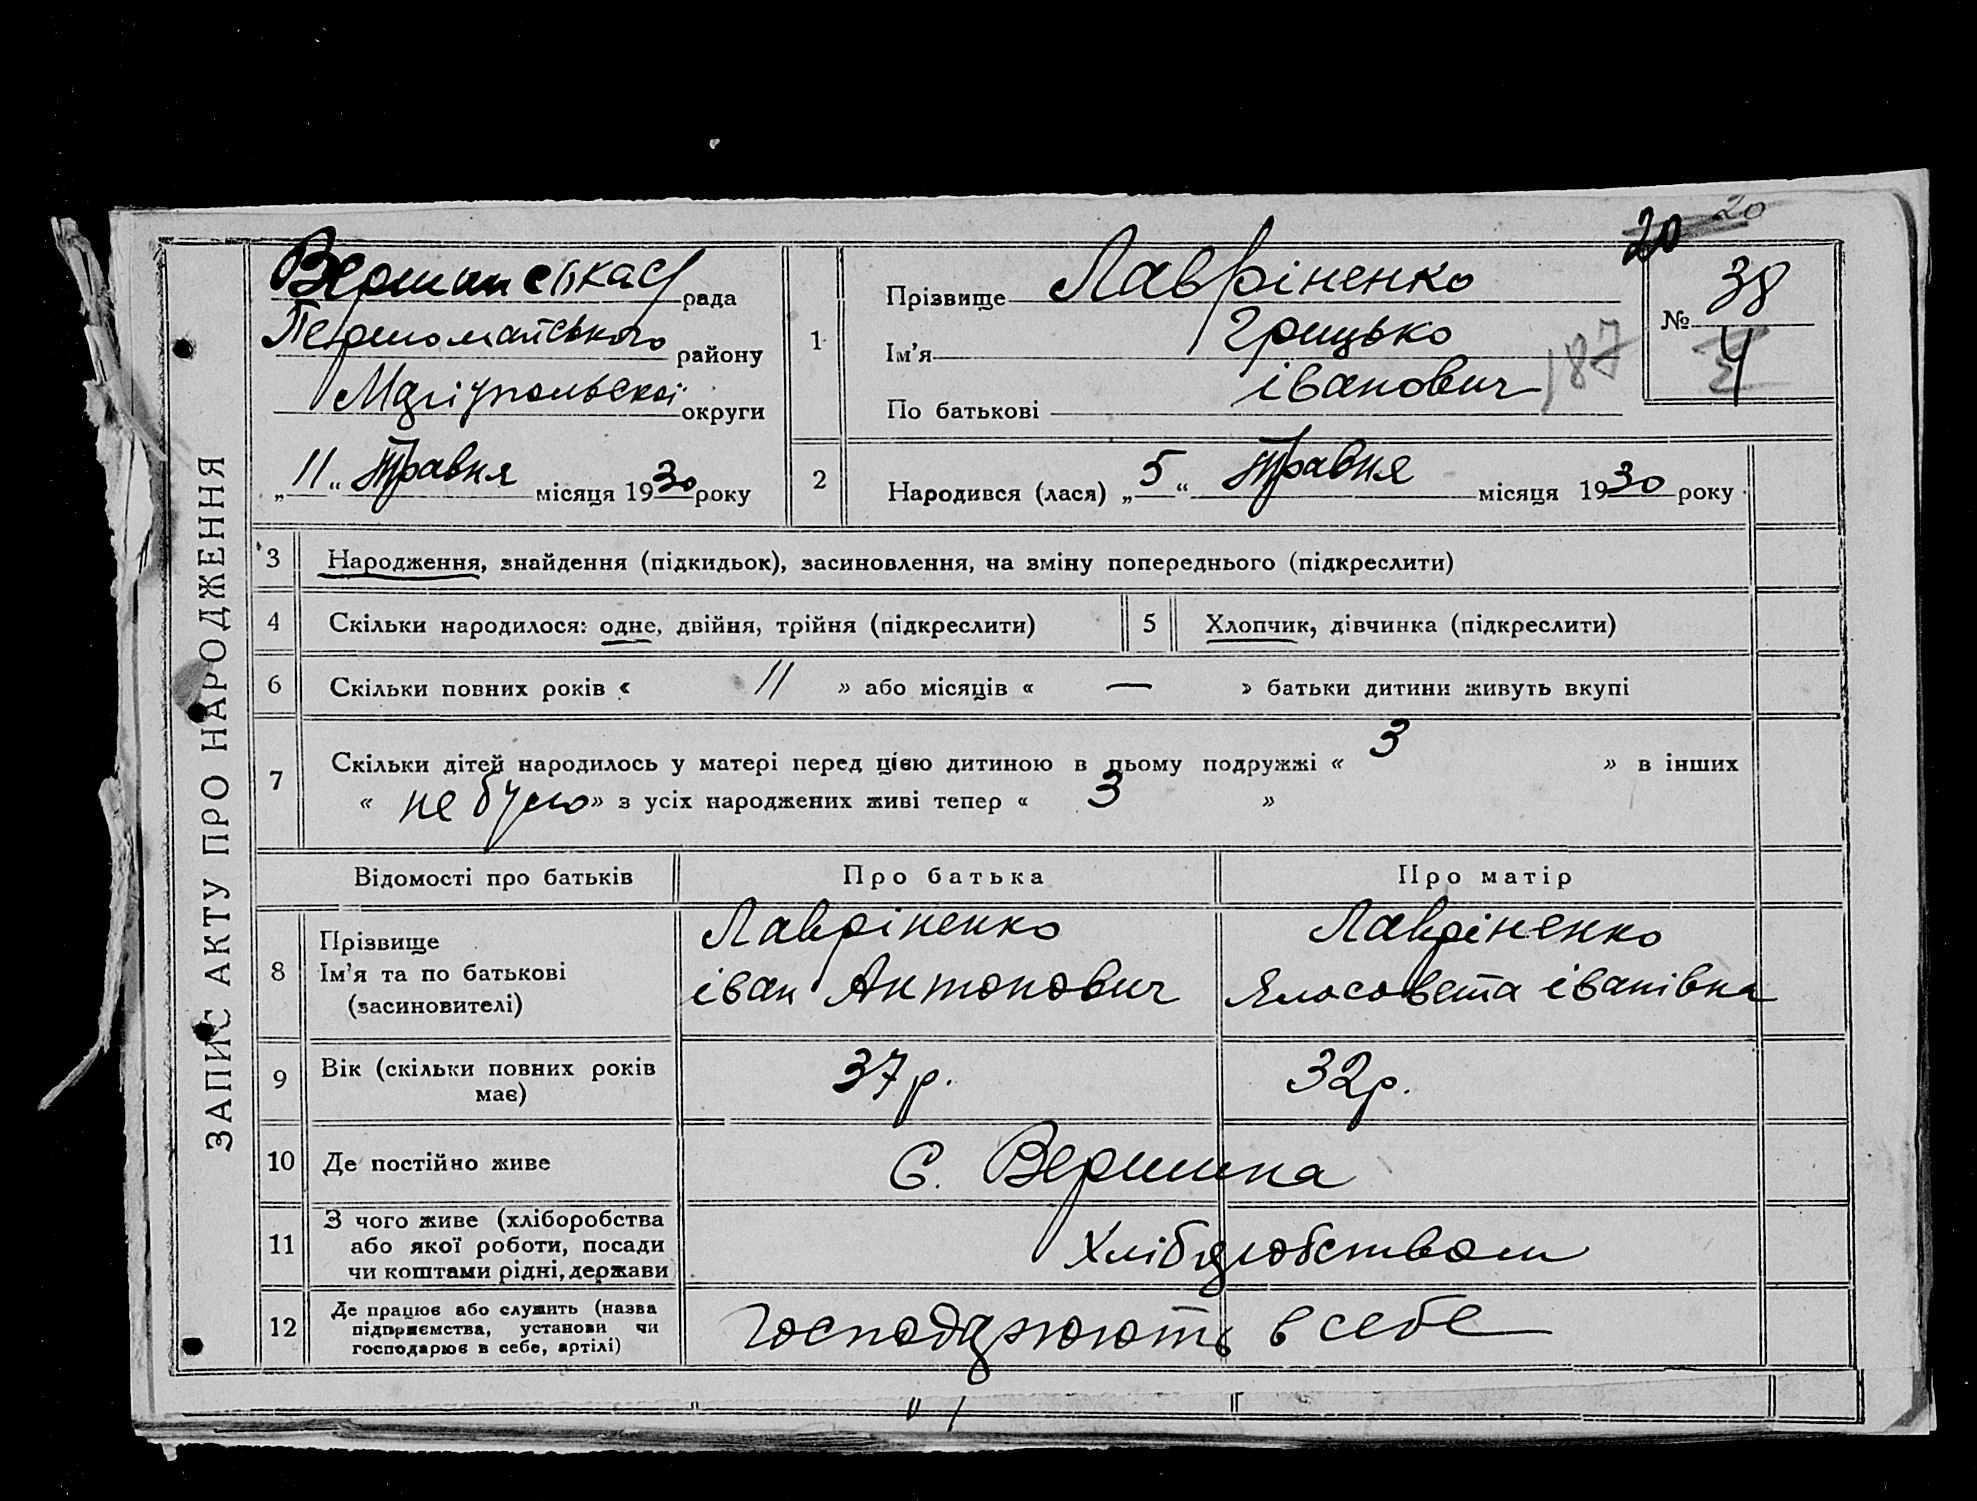 ЗАПИС АКТУ ПРО НАРОДЖЕННЯ
20 20
Вершинська рада
Першомайського району
Маріупольської округи
„11“ Травня місяця 1930 року
1
Прізвище Лавріненко
Ім’я Грицько
По батькові івaнович
187
№ 38
4
2
Народився (лася) „5“ Травня місяця 1930 року
3 Народження, знайдення (підкидьок), засиновлення, на зміну попереднього (підкреслити)
4 Скільки народилося: одне, двійня, трійня (підкреслити)
5 Хлопчик, дівчинка (підкреслити)
6 Скільки повних років « 11 » або місяців « — » батьки дитини живуть вкупі
7 Скільки дітей народилось у матері перед цією дитиною в цьому подружжі « 3 » в інших
« не було » з усіх народжених живі тепер « 3 »
Відомості про батьків Про батька Про матір
8 Прізвище
Ім’я та по батькові
(засиновителі)
Лавріненко
іван Антонович
Лавріненко
Ялосовета іванівна
9 Вік (скільки повних років
має)
37 р. 32 р.
10 Де постійно живе С. Вершина
11 З чого живе (хліборобства
або якої роботи, посади
чи коштами рідні, держави
Хліборобством
12 Де працює або служить (назва
підприємства, установи чи
господарює в себе, артілі)
Господарюють в себе